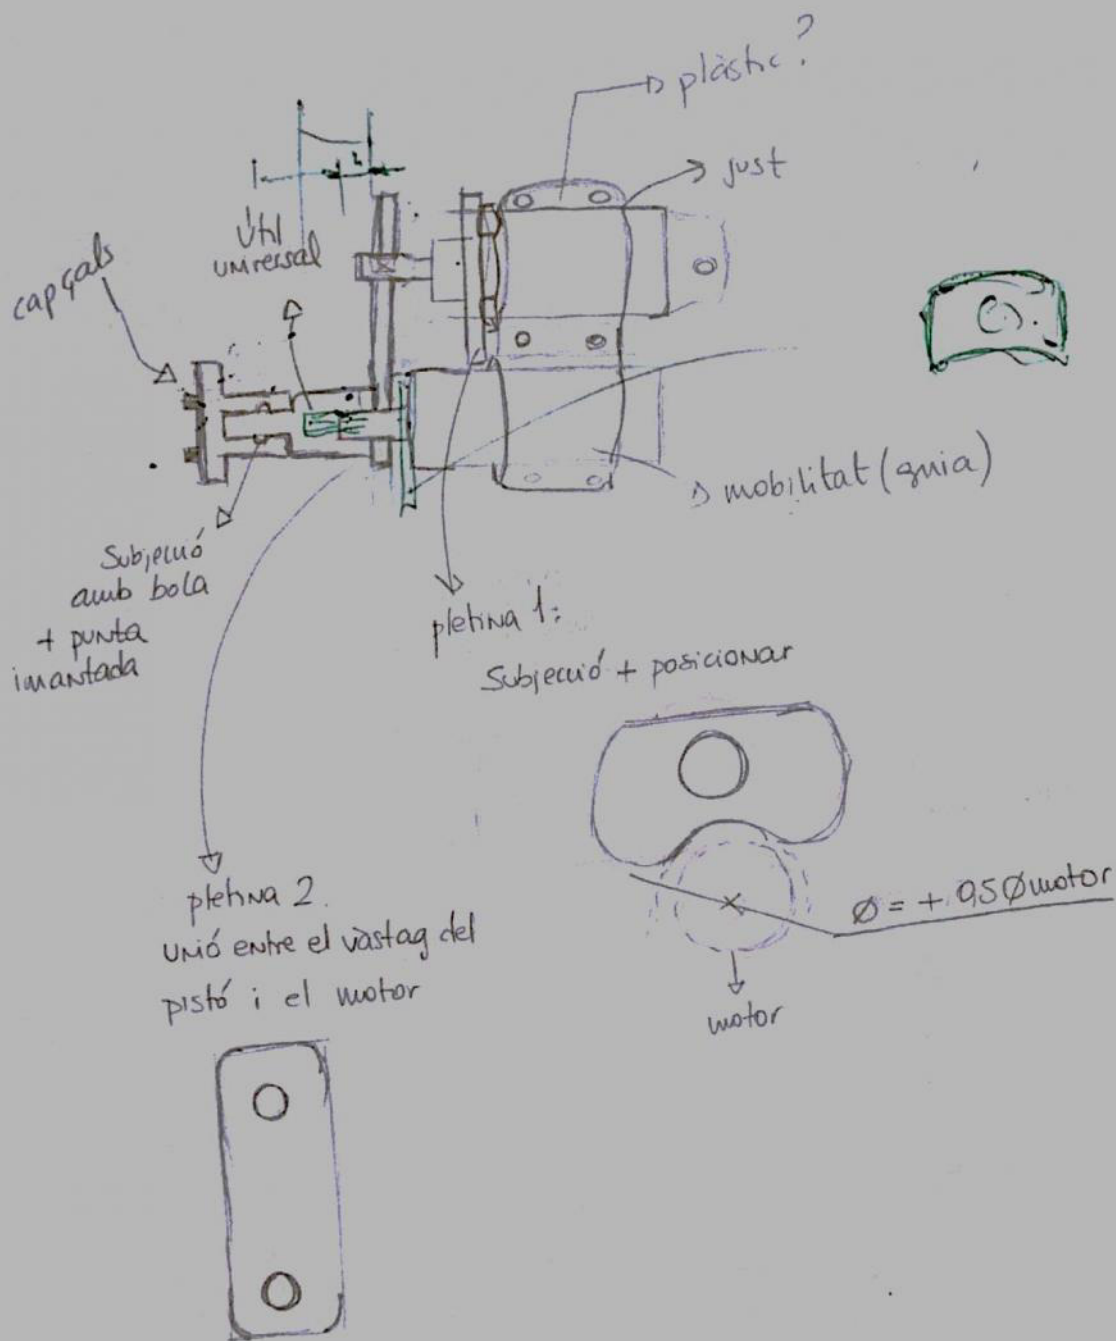 plàstic?
just
Útil
universal
capçals
mobilitat (guia)
Subjecció
amb bola
+ punta
imantada
pletina 1:
Subjecció + posicionar
pletina 2.
unió entre el vàstag del
pistó i el motor
Ø = + 0,5 Ømotor
motor